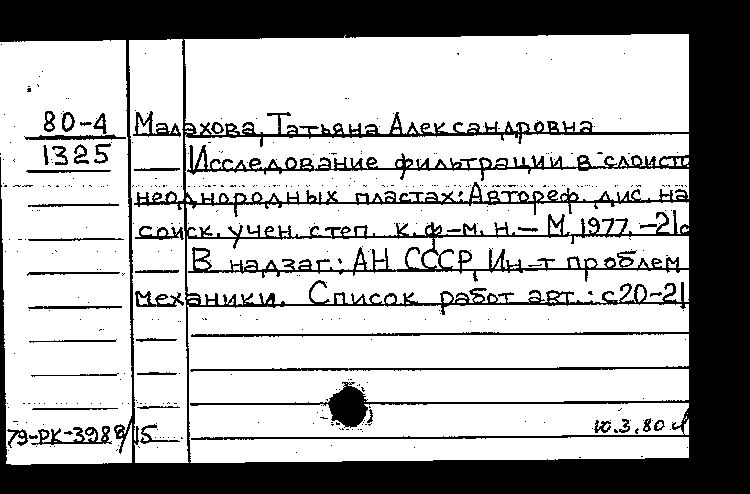 80-4 Малахова, Татьяна Александровна
1325 Исследование фильтрации в слоисто
неоднородных пластах: Автореф. дис. на
соиск. учен. степ. к. ф-м. н. - М, 1977. -21с
В надзаг.: АН СССР, Ин-т проблем
механики. Список работ авт.: с20-21
79-РК-3988/15 10.3.80